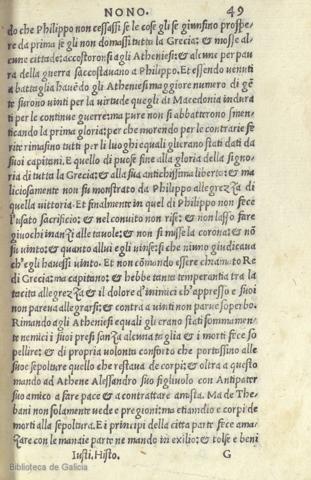 NONO. 49
do che Philippo non cessassi se le cose gli se giunsino prospe
re da prima se gli non domassi tutta la Grecia: & mosse al
cune cittade; accostoronsi agli Atheniesi: & alcune per pau
ra della guerra saccostauano a Philippo. Et essendo uenuti
a battaglia hauēdo gli Atheniesi maggiore numero di gē
te furono uinti per la uirtude quegli di Macedonia indura
ti per le continue guerre: ma pure non si abbatterono smen
ticando la prima gloria: per che morendo per le contrarie fe
rite rimasino tutti per li luoghi equali glierano stati dati da
suoi capitani. E quello di puose fine alla gloria della signo
ria di tutta la Grecia: & alla sua antichissima liberto: & ma
liciosamente non fu monstrato da Philippo allegrezza di
quella uittoria. Et finalmente in quel di Philippo non fece
l'usato sacrificio: & nel conuito non rise: & non lasso fare
giuochi inanzi alle tauole: & non si misse la corona: & nō
fu uinto: & quanto allui egli uinse: si che niuno giudicaua
ch'egli hauessi uinto. Et non cōmando essere chiamato Re
di Grecia: ma capitano: & hebbe tanta temperantia tra la
tacita allegrezza & il dolore d'inimici ch'appresso e suoi
non pareua allegrarsi: & contra a uinti non parue soperbo.
Rimando agli Atheniesi equali gli erano stati sommamen
te nemici i suoi presi sanza alcuna taglia & i morti fece so
pellire: & di propria uolonta conforto che portassino alle
suoe sepolture quello che restaua de corpi: & oltra a questo
mando ad Athene Alessandro suo figliuolo con Antipater
suo amico a fare pace & a contrattare amista. Ma de The
bani non solamente uede e pregioni: ma etiandio e corpi de
morti alla sepoltura. Et i principi della citta parte fece ama
zzare con le manaie parte ne mando in exilio: & tolse e beni
Iusti. Histo. G
Biblioteca de Galicia